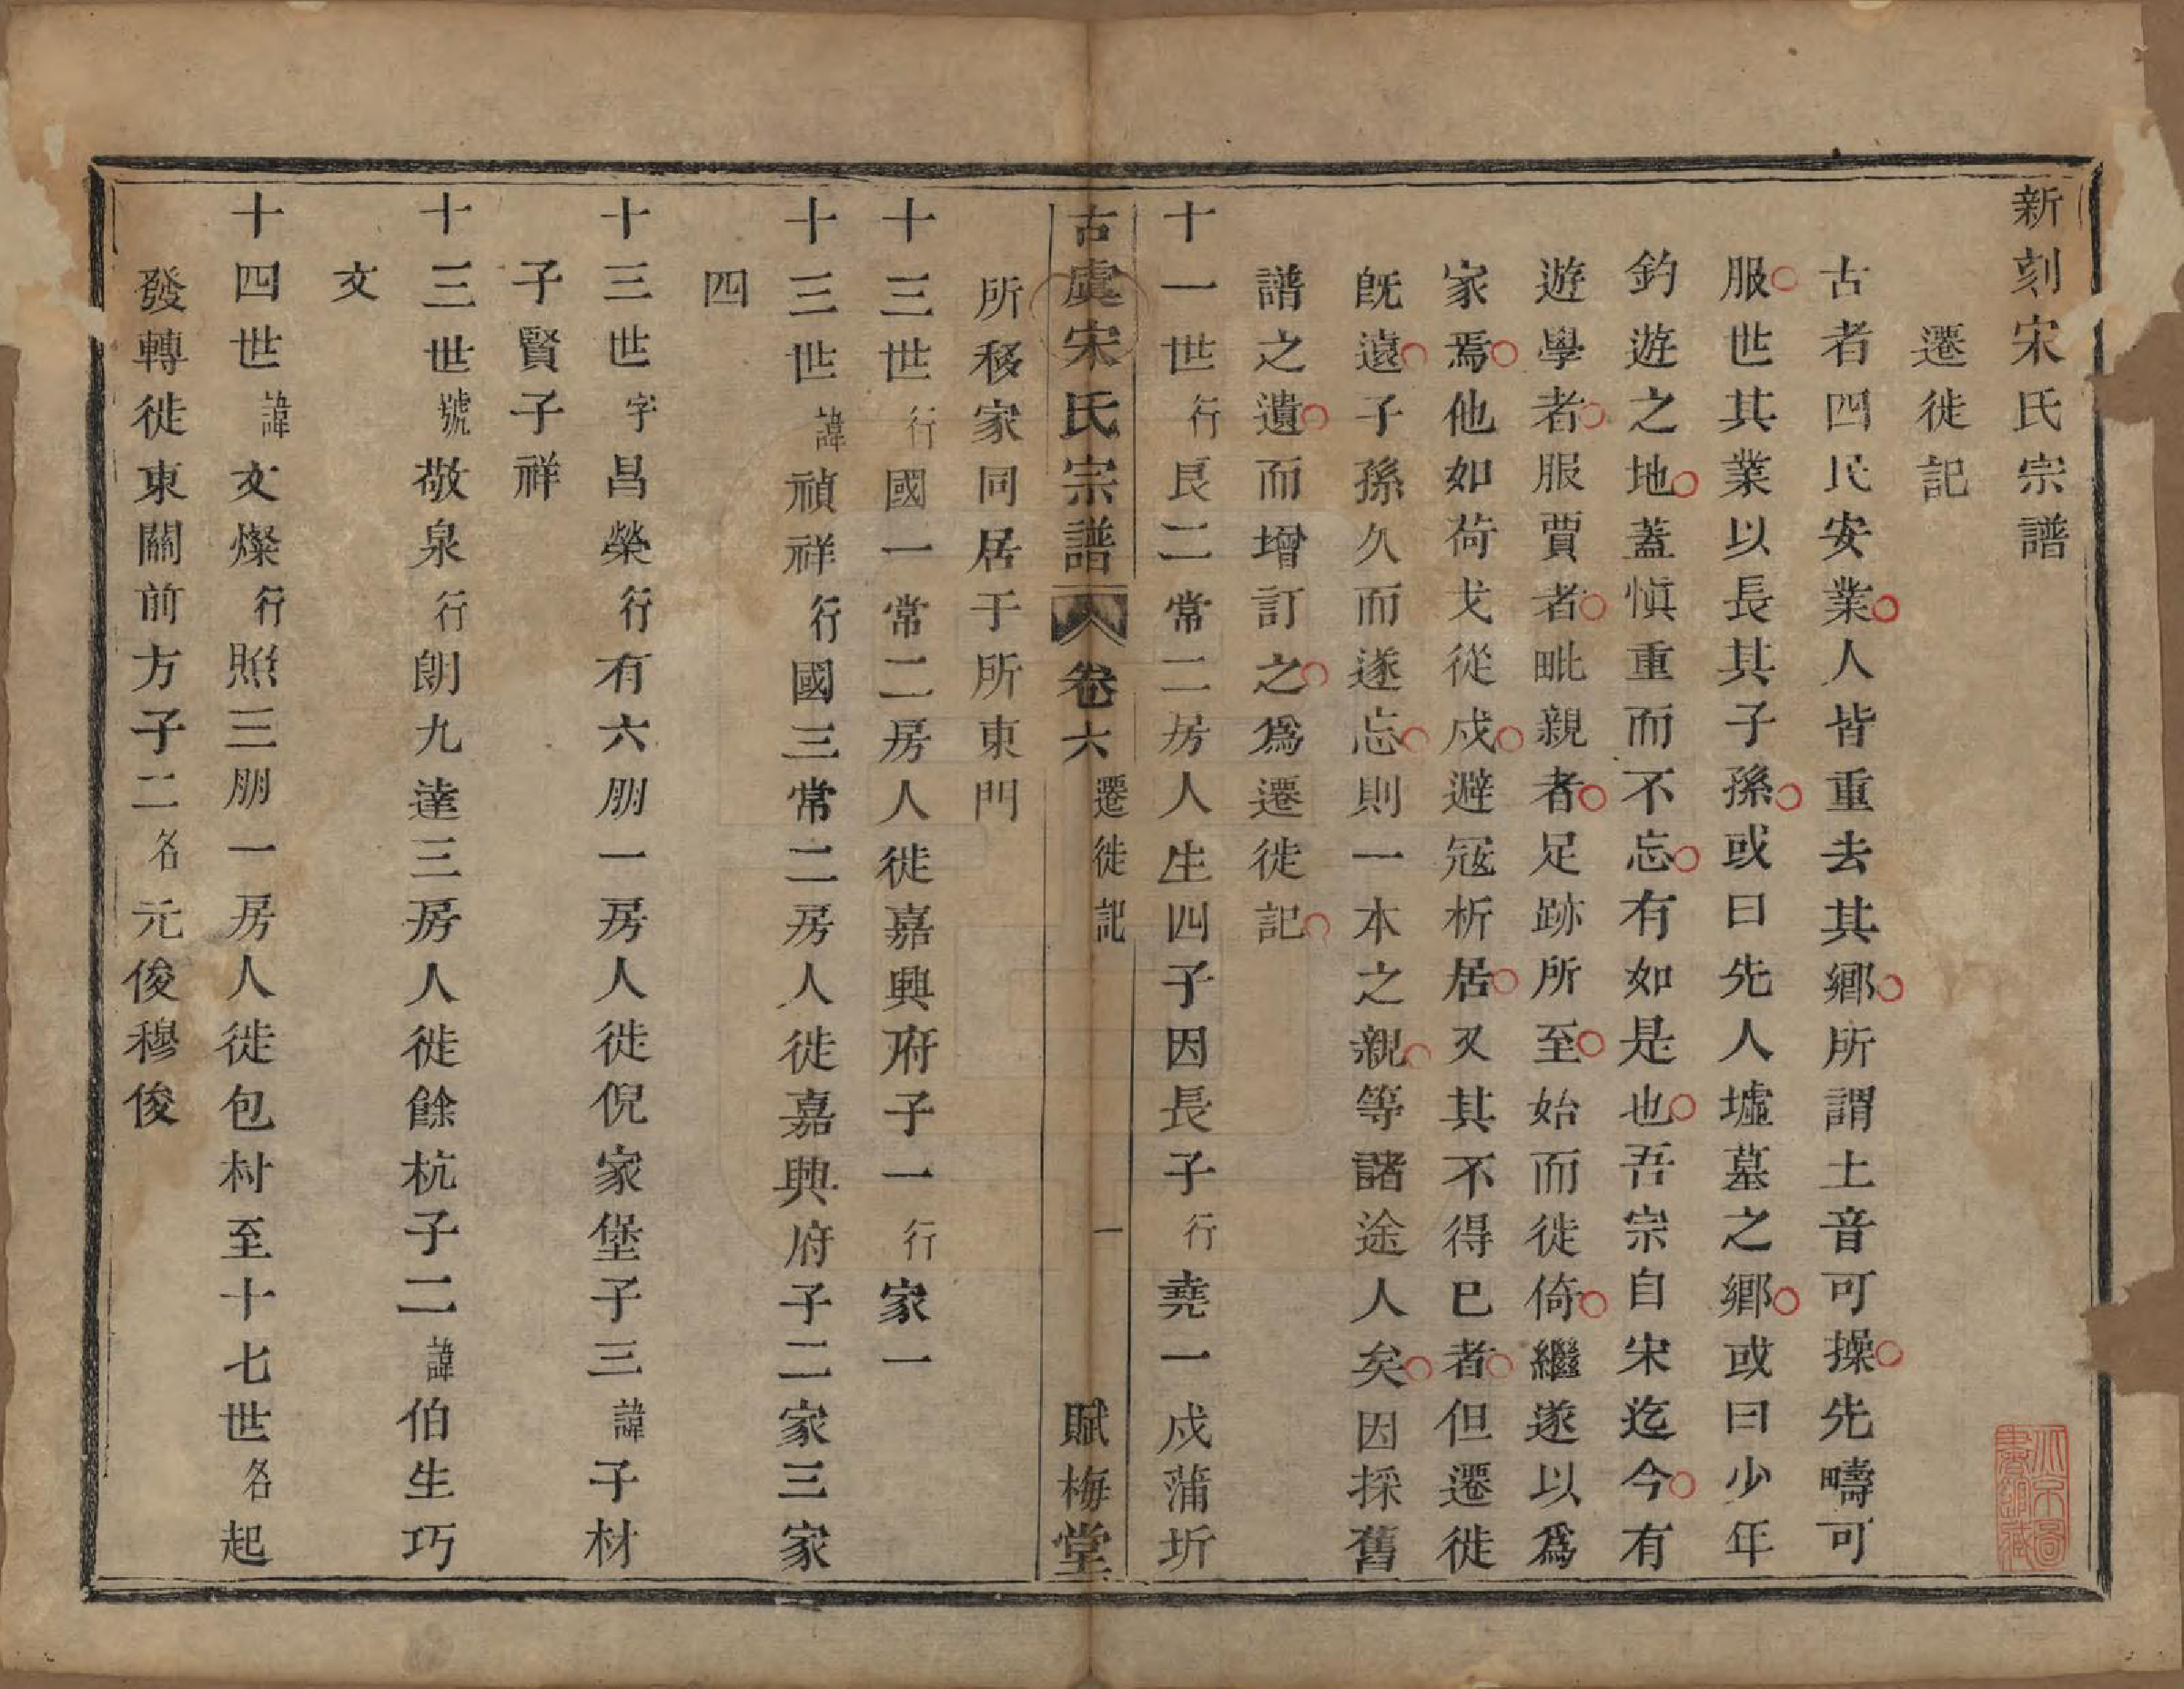 新刻宋氏宗譜
遷徙記
古者四民安業人皆重去其鄉所謂土音可操先疇可
服世其業以長其子孫或曰先人墟墓之鄉或曰少年
釣遊之地蓋慎重而不忘有如是也吾宗自宋迄今有
遊學者服賈者毗親者足跡所至始而徙倚繼遂以爲
家焉他如荷戈從戍避寇析居又其不得已者但遷徙
旣遠子孫久而遂忘則一本之親等諸途人矣因採舊
譜之遺而增訂之爲遷徙記
十一世行良二常二房人生四子因長子行堯一戍蒲圻
所移家同居于所東門
古虞宋氏宗譜 卷六 遷徙記 一 賦梅堂
十三世行國一常二房人徙嘉興府子一行家一
十三世諱禎祥行國三常二房人徙嘉興府子二家三家
四
十三世字昌榮行有六朋一房人徙倪家堡子三諱子材
子賢子祥
十三世號敬泉行朗九達三房人徙餘杭子二諱伯生巧
文
十四世諱文燦行照三朋一房人徙包村至十七世名起
發轉徙東關前方子二名元俊穆俊